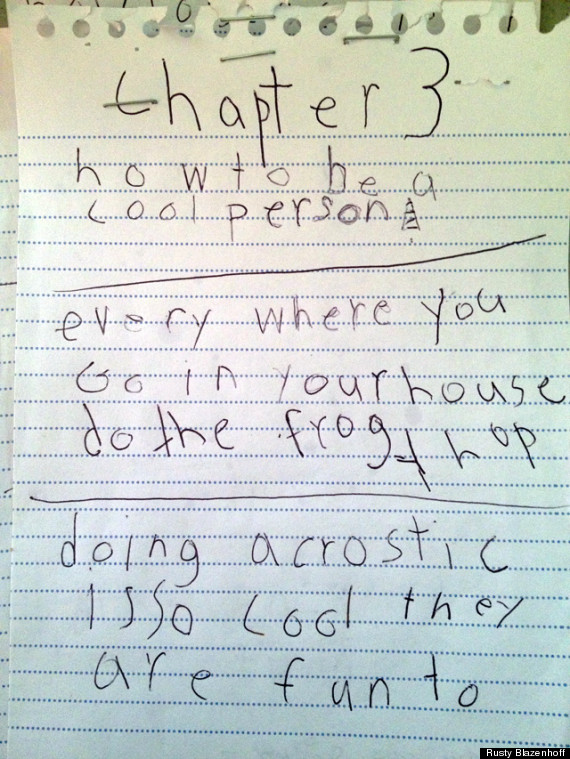 Chapter 3
how to be a
cool person
every where you
Go in your house
do the frog hop
doing acrostic
is so cool they
are fun to
Rusty Blazenhoff